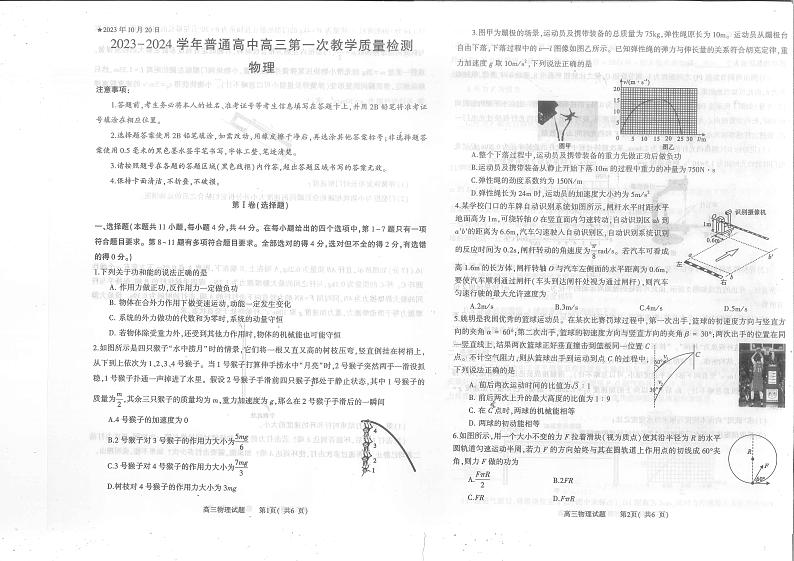 ★2023 年 10 月 20 日
2023-2024 学年普通高中高三第一次教学质量检测
物理
注意事项:
1.答题前,考生务必将本人的姓名、准考证号等考生信息填写在答题卡上,并用 2B 铅笔将准考证
号填涂在相应位置。
2.选择题答案使用 2B 铅笔填涂,如需改动,用橡皮擦干净后,再选涂其他答案标号;非选择题答
案使用 0.5 毫米的黑色墨水签字笔书写,字体工整、笔迹清楚。
3.请按照题号在各题的答题区域(黑色线框)内作答,超出答题区域书写的答案无效。
4.保持卡面清洁,不折叠,不破损。
第Ⅰ卷(选择题)
一、选择题(本题共 11 小题,每小题 4 分,共 44 分。在每小题给出的四个选项中,第 1~7 题只有一项
符合题目要求。第 8~11 题有多项符合题目要求。全部选对的得 4 分,选对但不全的得 2 分,有选错
的得 0 分。)
1.下列关于功和能的说法正确的是
A. 作用力做正功,反作用力一定做负功
B. 物体在合外力作用下做变速运动,动能一定发生变化
C. 系统的外力做功的代数和为零时,系统的动量守恒
D. 若物体除受重力外,还受到其他力作用时,物体的机械能也可能守恒
2.如图所示是四只猴子“水中捞月”时的情景,它们将一根又直又高的树枝压弯,竖直倒挂在树梢上,
从下到上依次为 1、2、3、4 号猴子。当 1 号猴子打算伸手捞水中“月亮”时,2 号猴子突然两手一滑没抓
稳,1 号猴子扑通一声掉进了水里。假设 2 号猴子手滑前四只猴子都处于静止状态,其中 1 号猴子的
质量为m/2,其余三只猴子的质量均为 m,重力加速度为 g,那么在 2 号猴子手滑后的一瞬间
A.4 号猴子的加速度为 0
B.2 号猴子对 3 号猴子的作用力大小为5mg/6
C.3 号猴子对 4 号猴子的作用力大小为7mg/3
D.树枝对 4 号猴子的作用力大小为 3mg
4
3
2
1
高三物理试题 第1页( 共6 页)
3.图甲为蹦极的场景,运动员及携带装备的总质量为 75kg,弹性绳原长为 10m。运动员从蹦极台
自由下落,下落过程中的 v—l 图像如图乙所示。已知弹性绳的弹力与伸长量的关系符合胡克定律,重
力加速度 g 取 10m/s²,下列说法正确的是
v/(m·s⁻¹)
20
15
10
5
0 5 10 15 20 25 30 l/m
图甲
图乙
A.整个下落过程中,运动员及携带装备的重力先做正功后做负功
B.运动员及携带装备从静止开始下落 10m 的过程中重力的冲量为 750N·s
C.弹性绳的劲度系数约为 150N/m
D.弹性绳长为 24m 时,运动员的加速度大小约为 5m/s²
4.某学校门口的车牌自动识别系统如图所示,闸杆水平时距水平
地面高为 1m,可绕转轴 O 在竖直面内匀速转动,自动识别区 ab 到
a′b′的距离为 6.6m,汽车匀速驶入自动识别区,自动识别系统识别
的反应时间为 0.2s,闸杆转动的角速度为π/8rad/s。若汽车可看成
高 1.6m 的长方体,闸杆转轴 O 与汽车左侧面的水平距离为 0.6m,
要使汽车顺利通过闸杆(车头到达闸杆处视为通过闸杆),则汽车
匀速行驶的最大允许速度为
识别摄像机
1m
0.6m
a
b
a′
b′
左
右
A.2m/s B.3m/s C.4m/s D.5m/s
5.姚明是我国优秀的篮球运动员。在某次比赛罚球过程中,第一次出手,篮球的初速度方向与竖直方
向的夹角 α = 60°,第二次出手,篮球的初速度方向与竖直方向的夹角 β = 30°,两次出手的位置在同
一竖直线上,结果两次篮球正好垂直撞击到篮板同一位置 C
点。不计空气阻力,则从篮球出手到运动到点 C 的过程中,
下列说法正确的是
A. 前后两次运动时间的比值为√3 : 1
B. 前后两次上升的最大高度的比值为 1 : 9
C. 在 C 点时,两球的机械能相等
D. 两球的初动能相等
C
60°
30°
6.如图所示,用一个大小不变的力 F 拉着滑块(视为质点)使其沿半径为 R 的水平
圆轨道匀速运动半周,若力 F 的方向始终与其在圆轨道上作用点的切线成 60°夹
角,则力 F 做的功为
A.FπR/2 B.2FR
C.FR D.FπR
R
F
60°
高三物理试题 第2页( 共6 页)